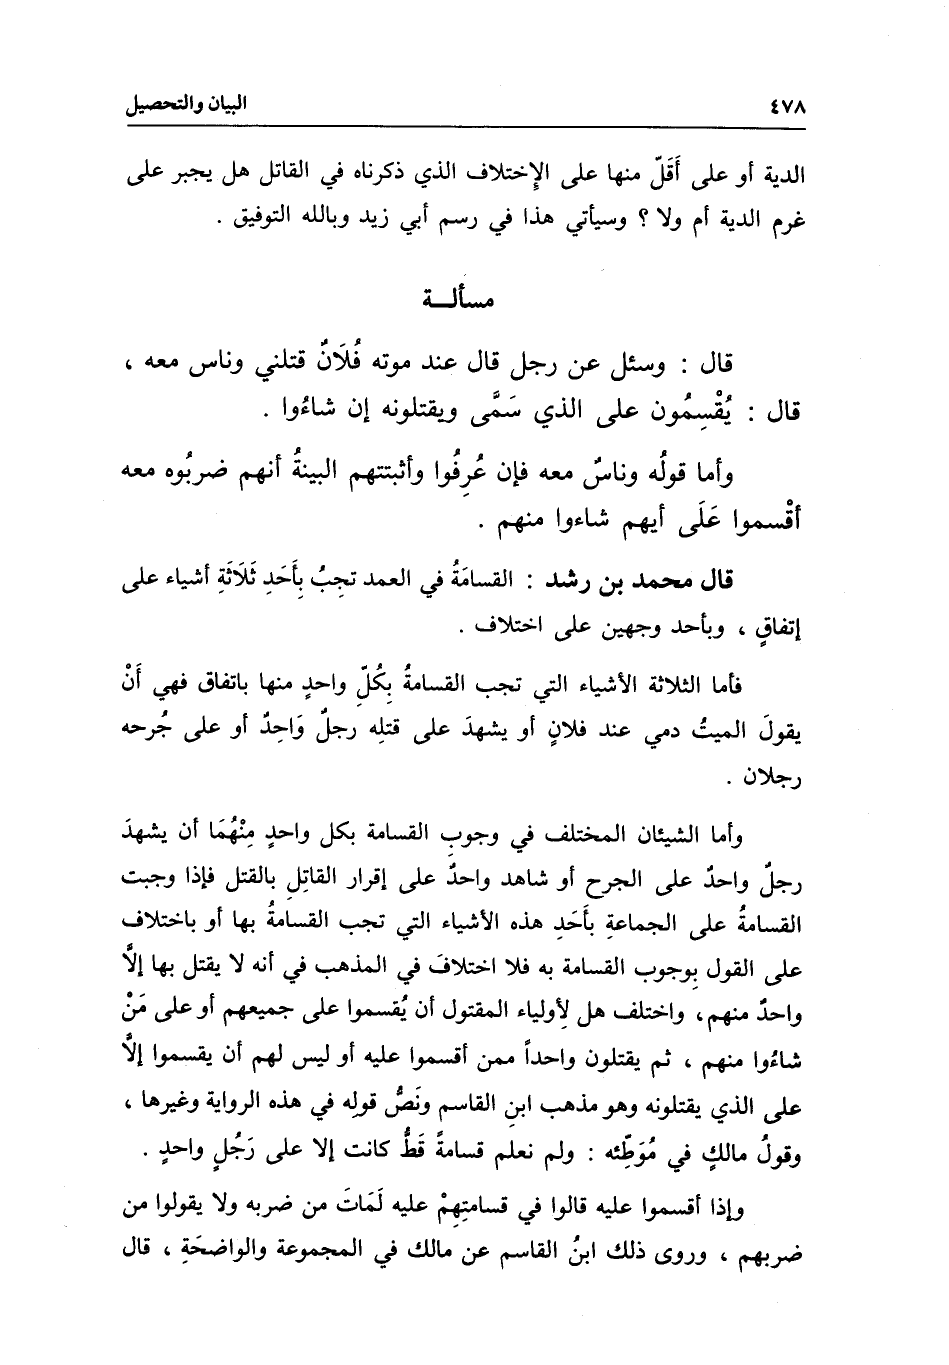 ٤٧٨ البيان والتحصيل
الدية أو على أَقَلّ منها على الإِختلاف الذي ذكرناه في القاتل هل يجبر على
غرم الدية أم ولا ؟ وسيأتي هذا في رسم أبي زيد وبالله التوفيق .
مسألة
قال : وسئل عن رجل قال عند موته فُلَانٌ قتلني وناس معه ،
قال : يُقْسِمُون على الذي سَمَّى ويقتلونه إن شاءُوا .
وأما قولُه وناسٌ معه فإن عُرِفُوا وأثبتتهم البينةُ أنهم ضربُوه معه
أقْسموا عَلَى أيهم شاءوا منهم .
قال محمد بن رشد : القسامَةُ في العمد تجِبُ بِأَحَدِ ثَلَاثَةِ أشياء على
إتفاقٍ ، وبأحد وجهين على اختلاف .
فأما الثلاثة الأشياء التي تجب القسامةُ بِكُلّ واحدٍ منها باتفاق فهي أَنْ
يقولَ الميتُ دمي عند فلانٍ أو يشهدَ على قتلِه رجلٌ وَاحِدٌ أو على جُرحه
رجلان .
وأما الشيئان المختلف في وجوبِ القسامة بكل واحدٍ مِنْهُمَا أن يشهدَ
رجلٌ واحدٌ على الجرح أو شاهد واحدٌ على إقرار القاتِلِ بالقتل فإذا وجبت
القسامةُ على الجماعةِ بأَحَدِ هذه الأشياء التي تجب القسامةُ بها أو باختلاف
على القول بِوجوب القسامة به فلا اختلافَ في المذهب في أنه لا يقتل بها إلَّا
واحدٌ منهم، واختلف هل لِأولياء المقتول أن يُقسموا على جميعهم أو على مَنْ
شاءُوا منهم ، ثم يقتلون واحداً ممن أقسموا عليه أو ليس لهم أن يقسموا إلَّا
على الذي يقتلونه وهو مذهب ابنِ القاسم ونَصُّ قولِه في هذه الرواية وغيرها ،
وقولُ مالكٍ في مُوَطِّئه : ولم نعلم قسامةً قَطُّ كانت إلا على رَجُلٍ واحدٍ .
وإذا أقسموا عليه قالوا في قسامتِهِمْ عليه لَمَاتَ من ضربه ولا يقولوا من
ضربهم ، وروى ذلك ابنُ القاسم عن مالك في المجموعة والواضحَةِ ، قال